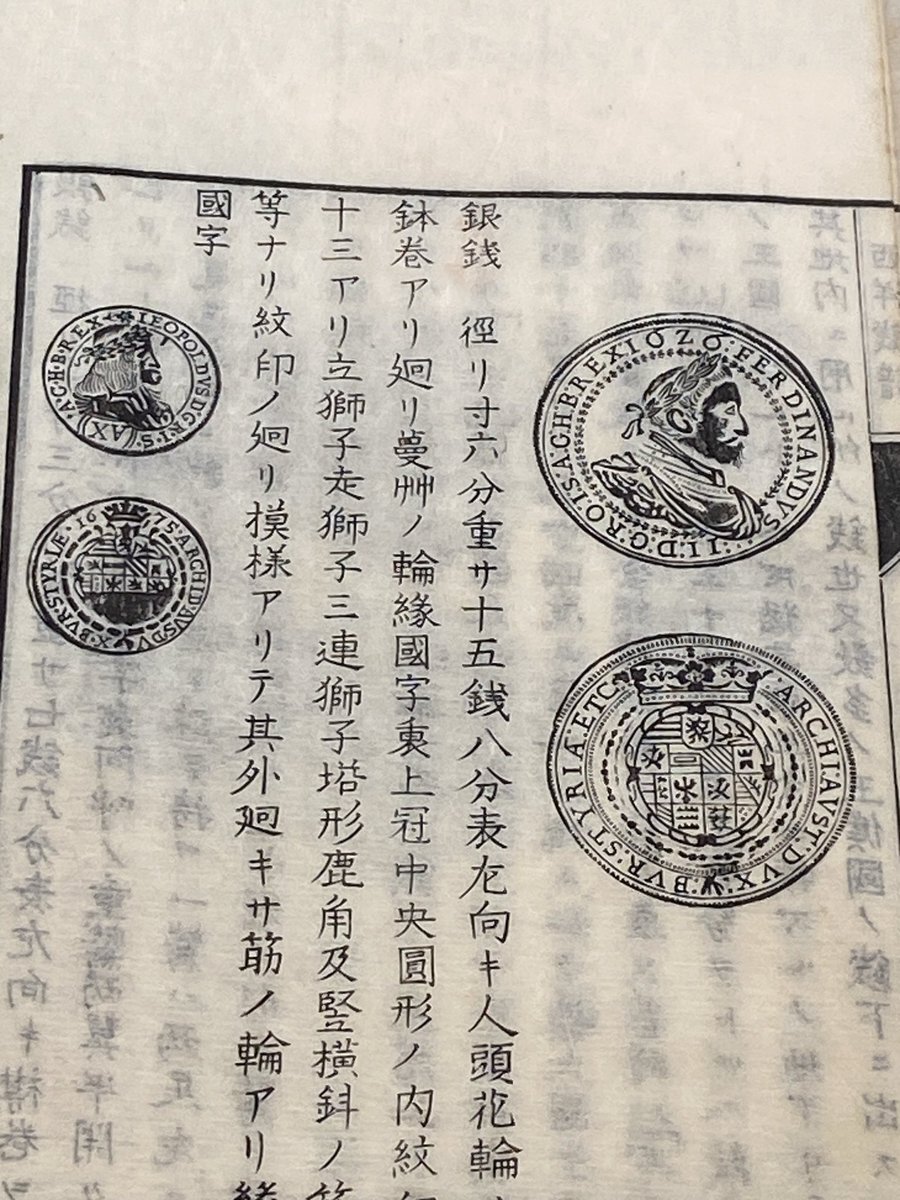 FERDINANDVS·II·D·G·RO·I·S·A·G·H·B·REX
ARCHI·AVST·DVX·BVR·STYRIA·ETC
銀銭　徑リ寸六分重サ十五銭八分表左向キ人頭花輪
鉢巻アリ廻リ蔓艸ノ輪緣國字裏上冠中央圓形ノ内紋
十三アリ立獅子走獅子三連獅子塔形鹿角及竪橫斜ノ
等ナリ紋印ノ廻リ模様アリテ其外廻キサ筋ノ輪アリ緣
國字
LEOPOLDVS·D·G·R·I·S·A·G·H·B·REX
1675·ARCHID·AVS·DVX·BVR·STYRIÆ